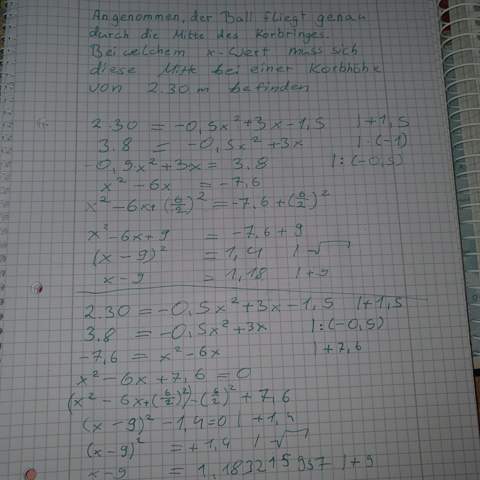 Angenommen, der Ball fliegt genau
durch die Mitte des Korbringes.
Bei welchem x-Wert muss sich
diese Mitte bei einer Korbhöhe
von 2.30 m befinden
2.30 = -0,5x² + 3x - 1,5 |+1,5
3.8 = -0,5x² + 3x |·(-1)
-0,5x² + 3x = 3.8 |:(-0,5)
x² - 6x = -7,6
x² - 6x + (6/2)² = -7,6 + (6/2)²
x² - 6x + 9 = -7,6 + 9
(x - 9)² = 1,4 |√
x - 9 = 1,18 |+9
2.30 = -0,5x² + 3x - 1,5 |+1,5
3.8 = -0,5x² + 3x |:(-0,5)
-7,6 = x² - 6x |+7,6
x² - 6x + 7,6 = 0
(x² - 6x + (6/2)²) - (6/2)² + 7,6
(x - 9)² - 1,4 = 0 |+1,4
(x - 9)² = +1,4 |√
x - 9 = 1,183215957 |+9